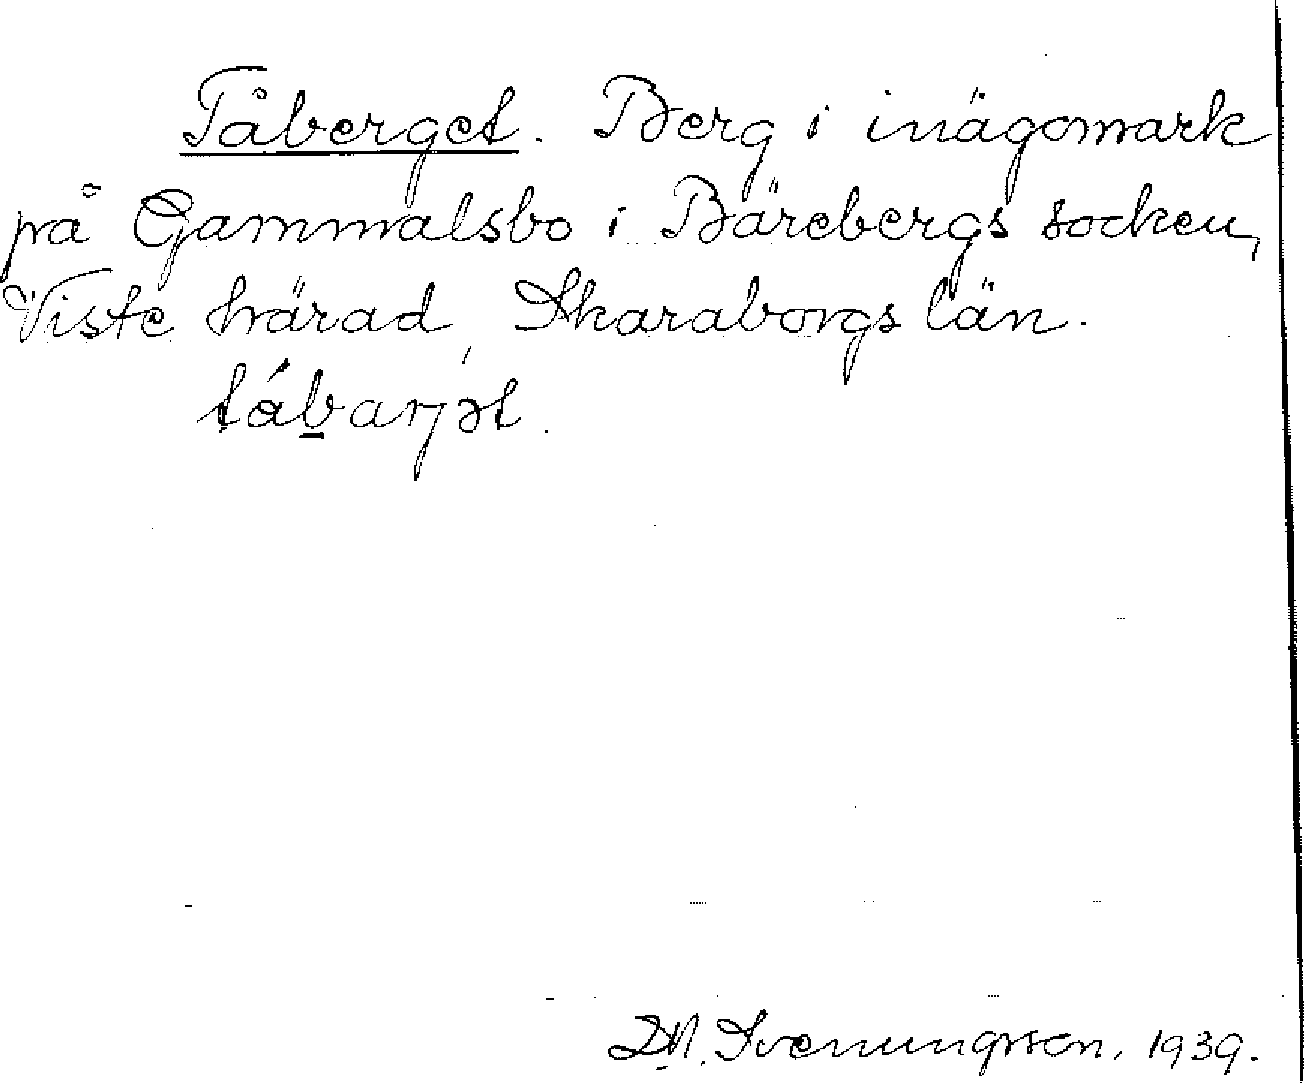 Tåberget. Berg i inägomark
på Gammalsbo i Bärebergs socken,
Viste härad, Skaraborgs län.
tábarjət.
D.N. Svenungsson, 1939.